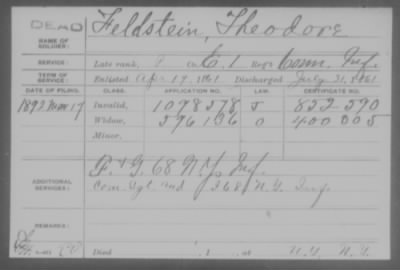 DEAD
Feldstein, Theodore
NAME OF SOLDIER:
SERVICE: Late rank, P Co. C, 1 Reg't Conn. Inf.
TERM OF SERVICE: Enlisted Apr 19, 1861 Discharged July 31, 1861
DATE OF FILING. CLASS. APPLICATION NO. LAW. CERTIFICATE NO.
1892 17 Invalid, 1098578 J 852590
Widow, 596136 O 400005
Minor,
ADDITIONAL SERVICES: F & G. 68 N.Y. Inf.
Com. Sgt. 68 N.Y. Inf.
REMARKS:
Died , 1 , at N.Y. N.Y.